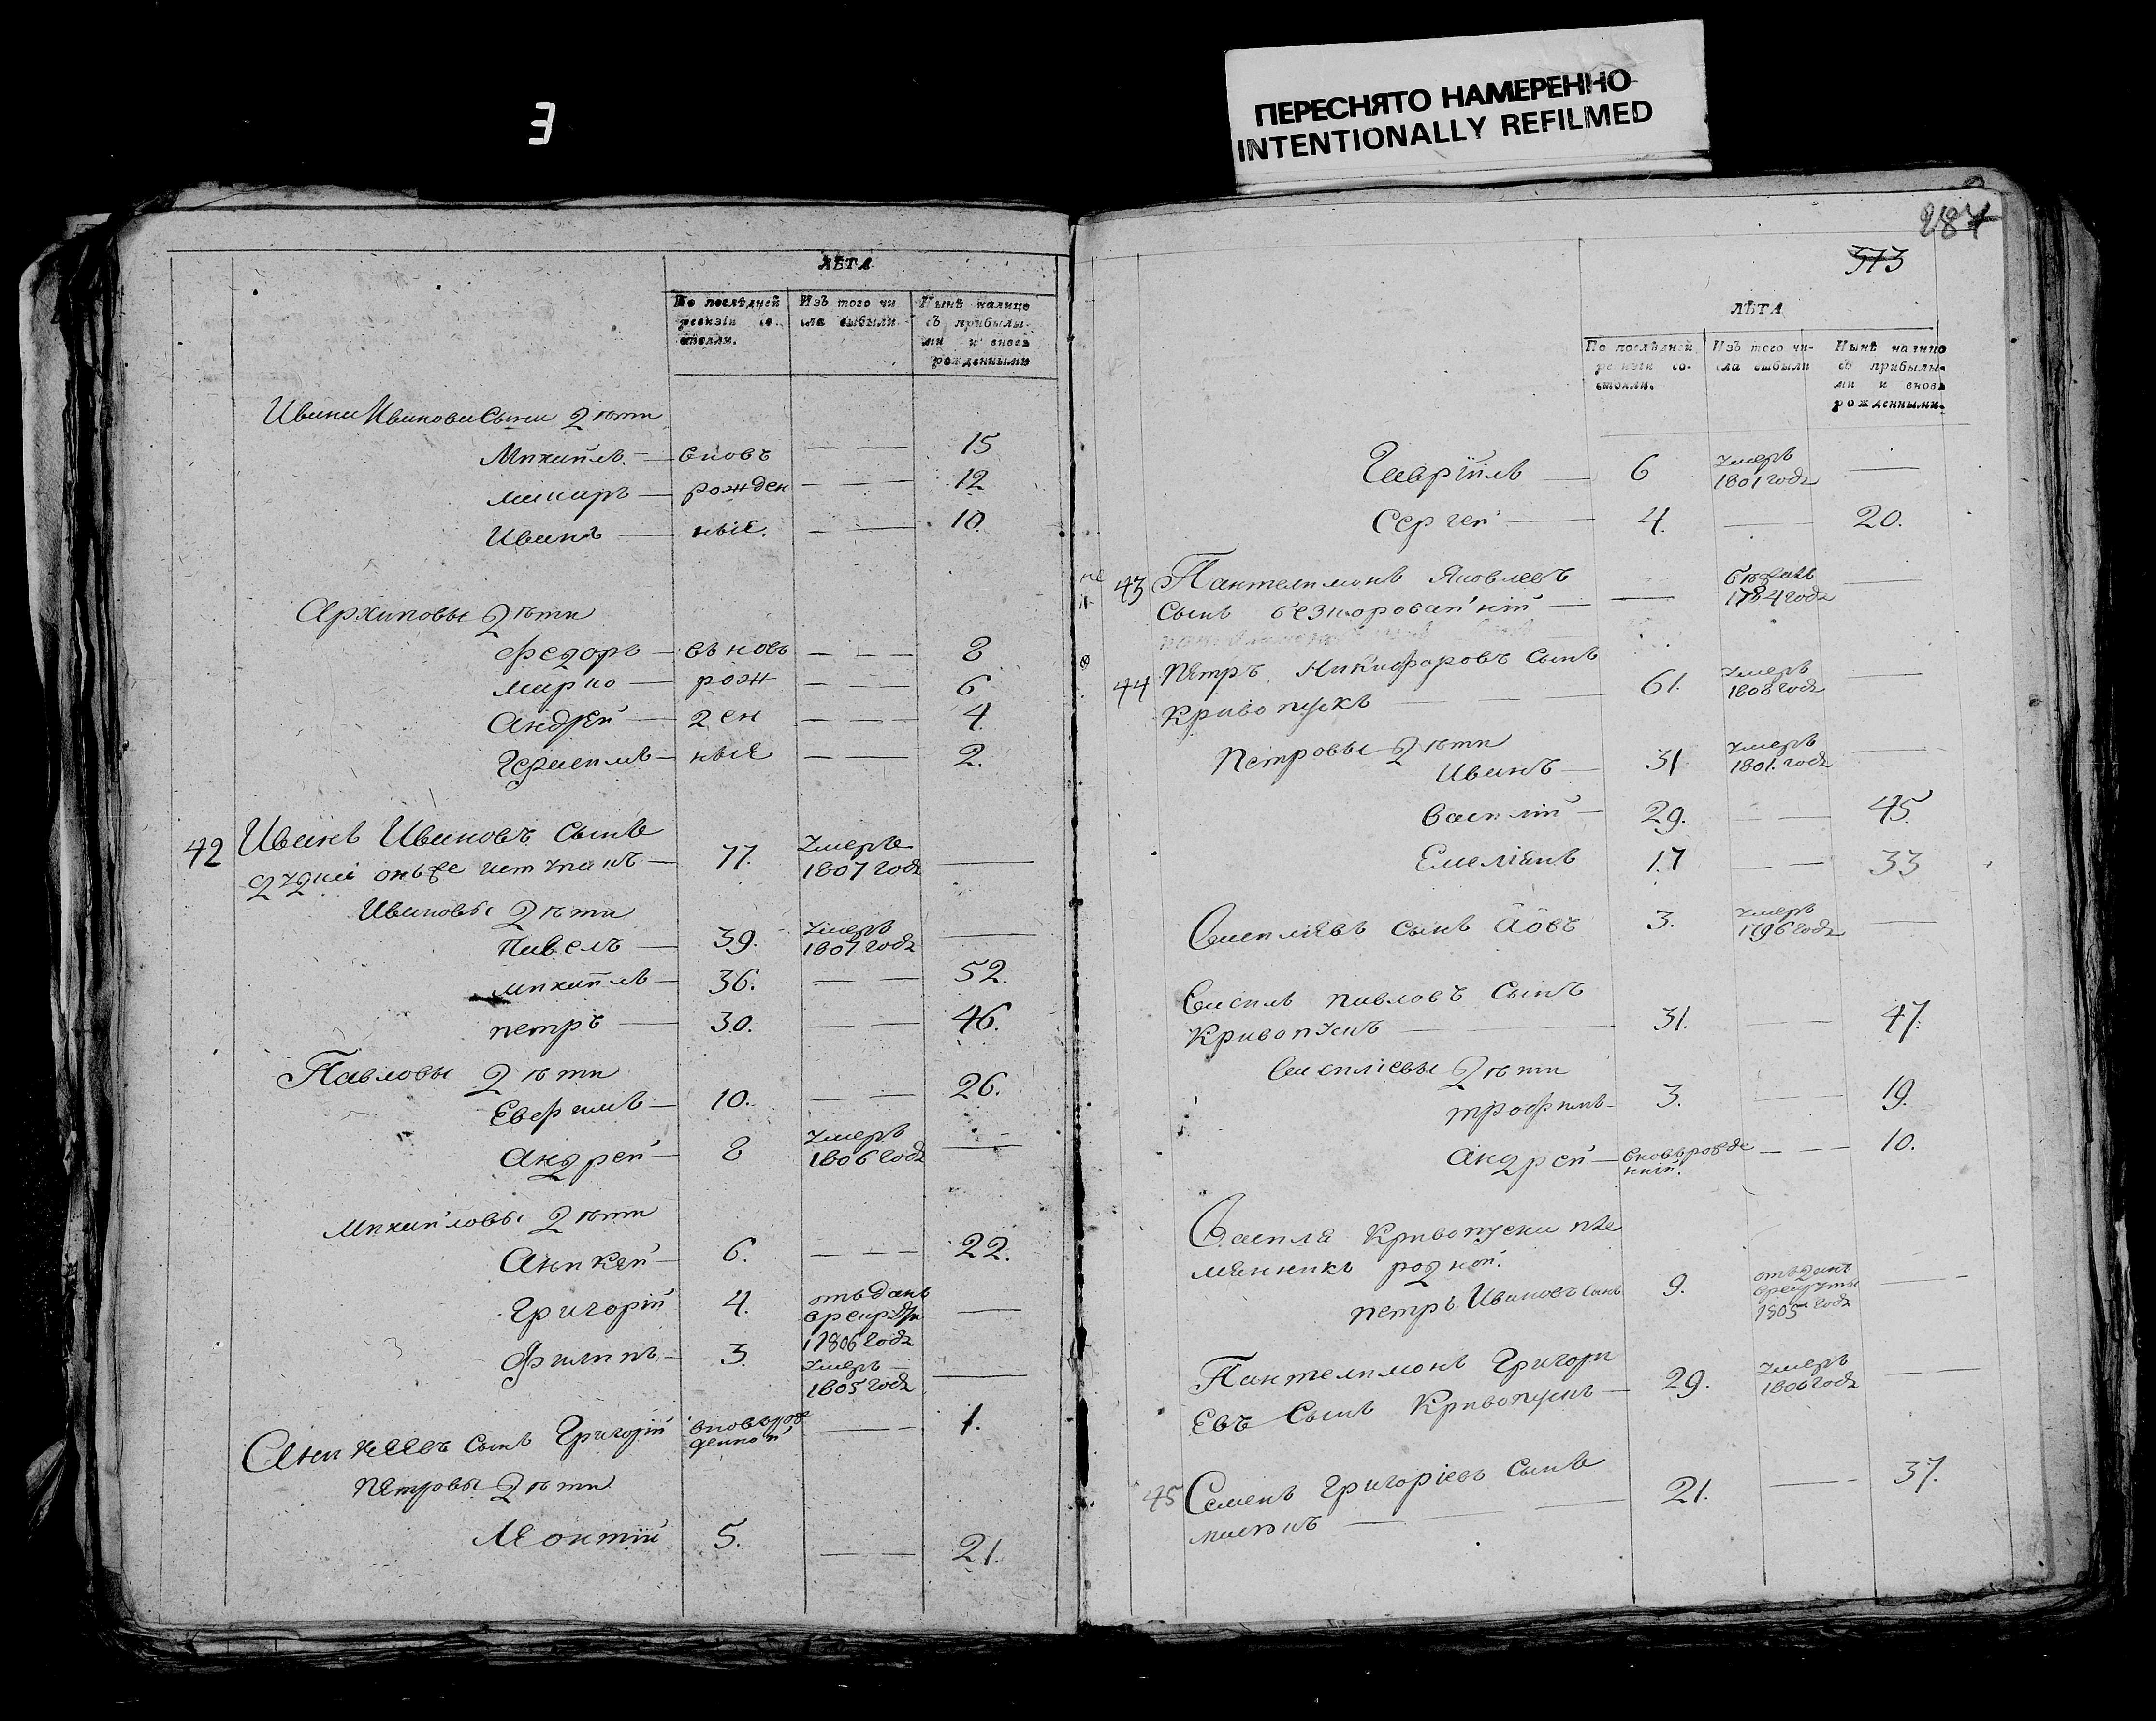 З
ПЕРЕСНЯТО НАМЕРЕННО
INTENTIONALLY REFILMED
ЛѢТА
По послѣдней ревизіи состояли.
Изъ того числа выбыли
Нынѣ налицо съ прибылыми и вновь рожденными
Ивана Иванова сына дѣти
Михайлъ — вновь — — 15
макаръ — рожден — — 12
Иванъ — ные. — — 10.
Архиповы дѣти
Федоръ — вновь — — 8
марко — рож — — 6
Андрей — ден — — 4.
Герасимъ — ные — — 2.
42 Иванъ Ивановъ сынъ
77. Умеръ 1807 годѣ —
Ивановы дѣти
Павелъ — 39. Умеръ 1807 годѣ —
михайлъ — 36. — — 52.
петръ — 30. — — 46.
Павловы дѣти
Евфимъ — 10. — — 26.
Андрей — 8 Умеръ 1806 годѣ —
Михайловы дѣти
Аникей — 6. — — 22.
Григорій 4. отъданъ
1806 годѣ —
Филипъ — 3. Умеръ 1805 годѣ —
сынъ Григорій — 1.
Петровы дѣти
Леонтій 5. — — 21.
287
573
ЛѢТА
По послѣдней ревизіи состояли.
Изъ того числа выбыли
Нынѣ налицо съ прибылыми и вновь рожденными.
Гаврійлъ — 6 Умеръ 1801 годѣ —
Сергей — 4. — 20.
43 Пантелимонъ Яковлевъ
сынъ — — 1784 годѣ —
44 Петръ Никифоровъ сынъ
Кривопускъ — — 61. Умеръ 1808 годѣ —
Петровы дѣти
Иванъ — 31 Умеръ 1801. годѣ —
Василій — 29. — — 45.
Емеліянъ 17 — — 33
Василіявъ сынъ 3. Умеръ 1796 годѣ —
Василь павловъ сынъ
Кривопускъ — 31. — — 47.
Василіевы дѣти
трофимъ — 3. — 19.
Андрей — — — 10.
Василя Кривопуска пле
мянникъ родной.
петръ Ивановъ сынъ 9. отъданъ
1805 годѣ —
Пантелимонъ Григори
евъ сынъ Кривопускъ — 29. Умеръ 1806 годѣ —
45 Семенъ Григоріевъ сынъ
— — 21. — — 37.